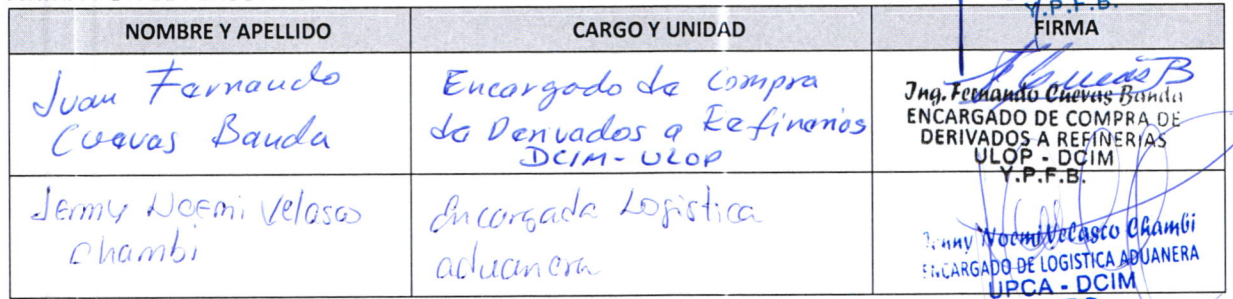 Y.P.F.B.
NOMBRE Y APELLIDO CARGO Y UNIDAD FIRMA
Juan Fernando
Cuevas Banda
Encargado de Compra
de Derivados a Refinerias
DCIM - ULOP
Ing. Fernando Cuevas Banda
ENCARGADO DE COMPRA DE
DERIVADOS A REFINERIAS
ULOP - DCIM
Y.P.F.B.
Jenny Noemi Velasco
Chambi
Encargada Logistica
aduanera
Jenny Noemi Velasco Chambi
ENCARGADO DE LOGISTICA ADUANERA
UPCA - DCIM